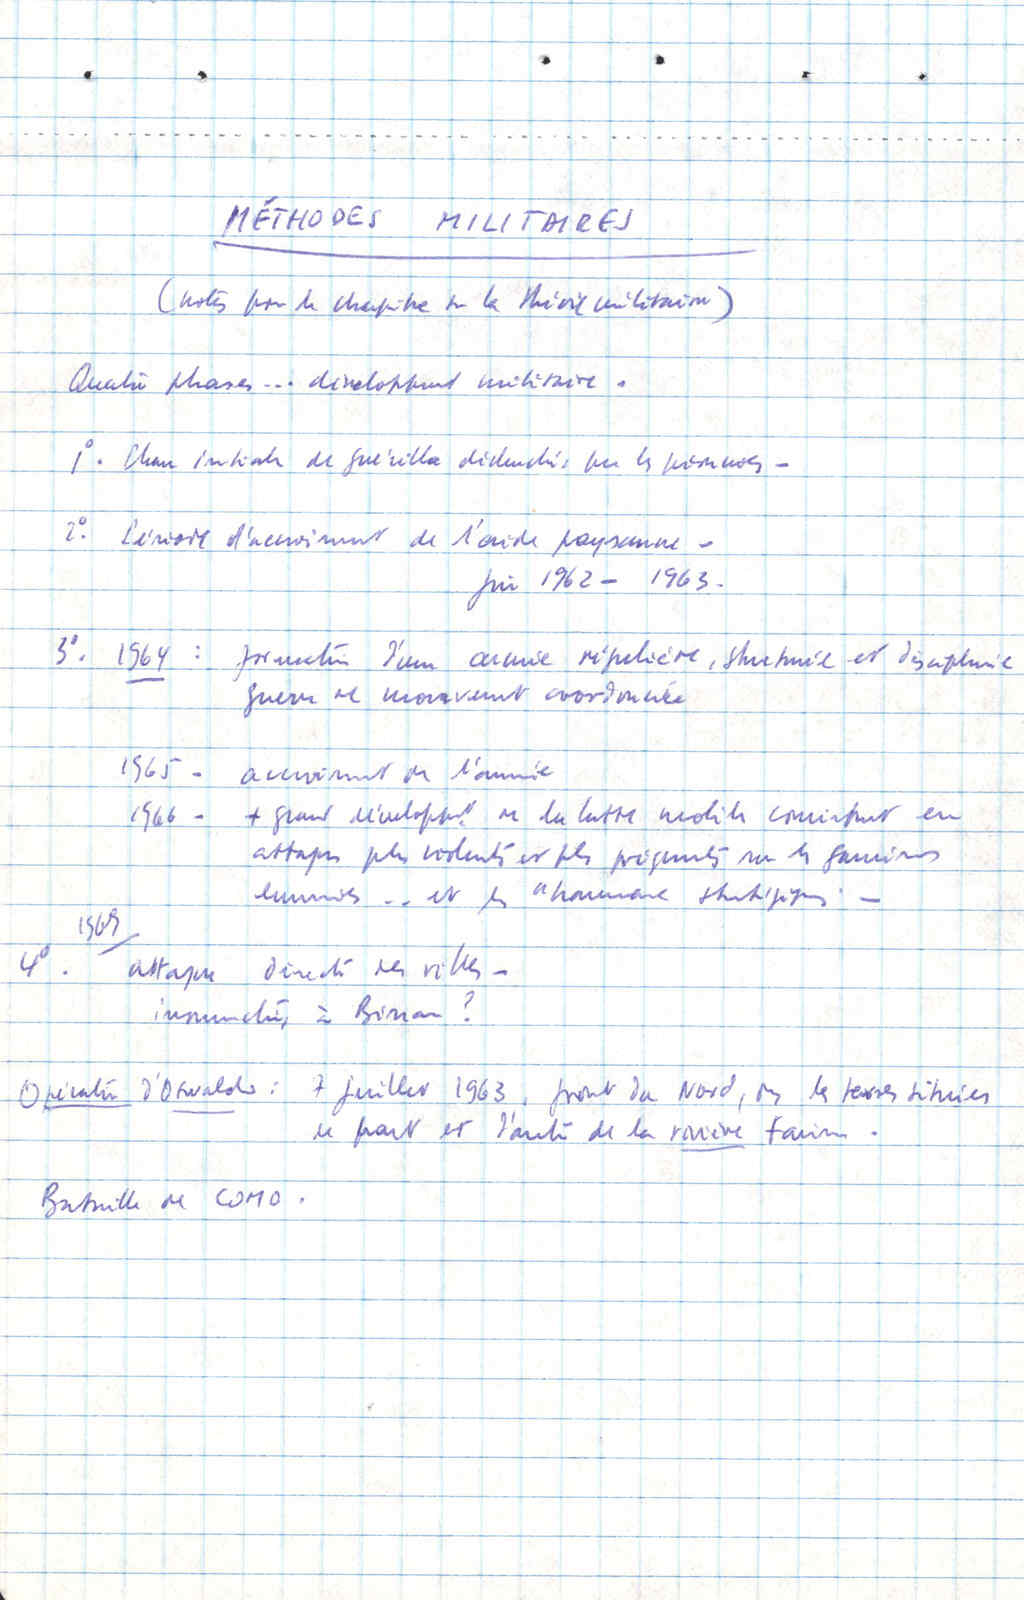 MÉTHODES MILITAIRES
(notes pour le chapitre sur la théorie militaire)
Quatre phases ... développmt militaire.
1º. Phase initiale de guérilla déclenchée par les
2º. Période d'accroissmt de l'aide paysanne -
juin 1962 - 1963.
3º. 1964 : formation d'une armée régulière, structurée et disciplinée
guerre de mouvement coordonnée
1965 - accroissmt de l'armée
1966 - + grand développt de la lutte mobile consistant en
attaques plus violentes et plus fréquentes sur les garnisons
ennemies ... et les "hameaux stratégiques" -
1969
4º. attaque directe des villes -
à Bissau ?
Opération d'Oswaldo : 7 juillet 1963, front du Nord, ds les terres situées
de part et d'autre de la rivière Farim.
Bataille de COMO.